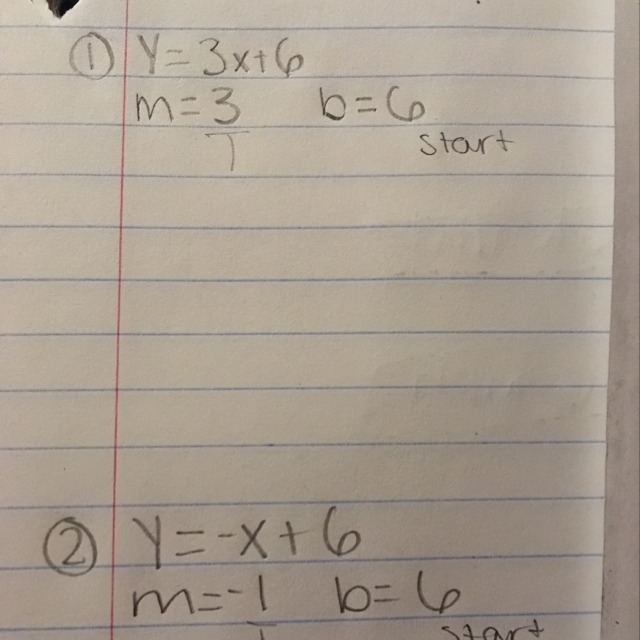 ① Y=3x+6
m=3 b=6
1 start
② Y=-x+6
m=-1 b=6
start